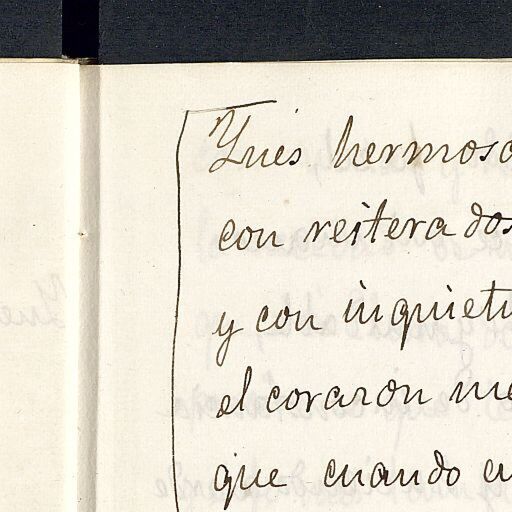 Ynés hermosa
con reiterados
y con inquietu
el corazon me
que cuando en